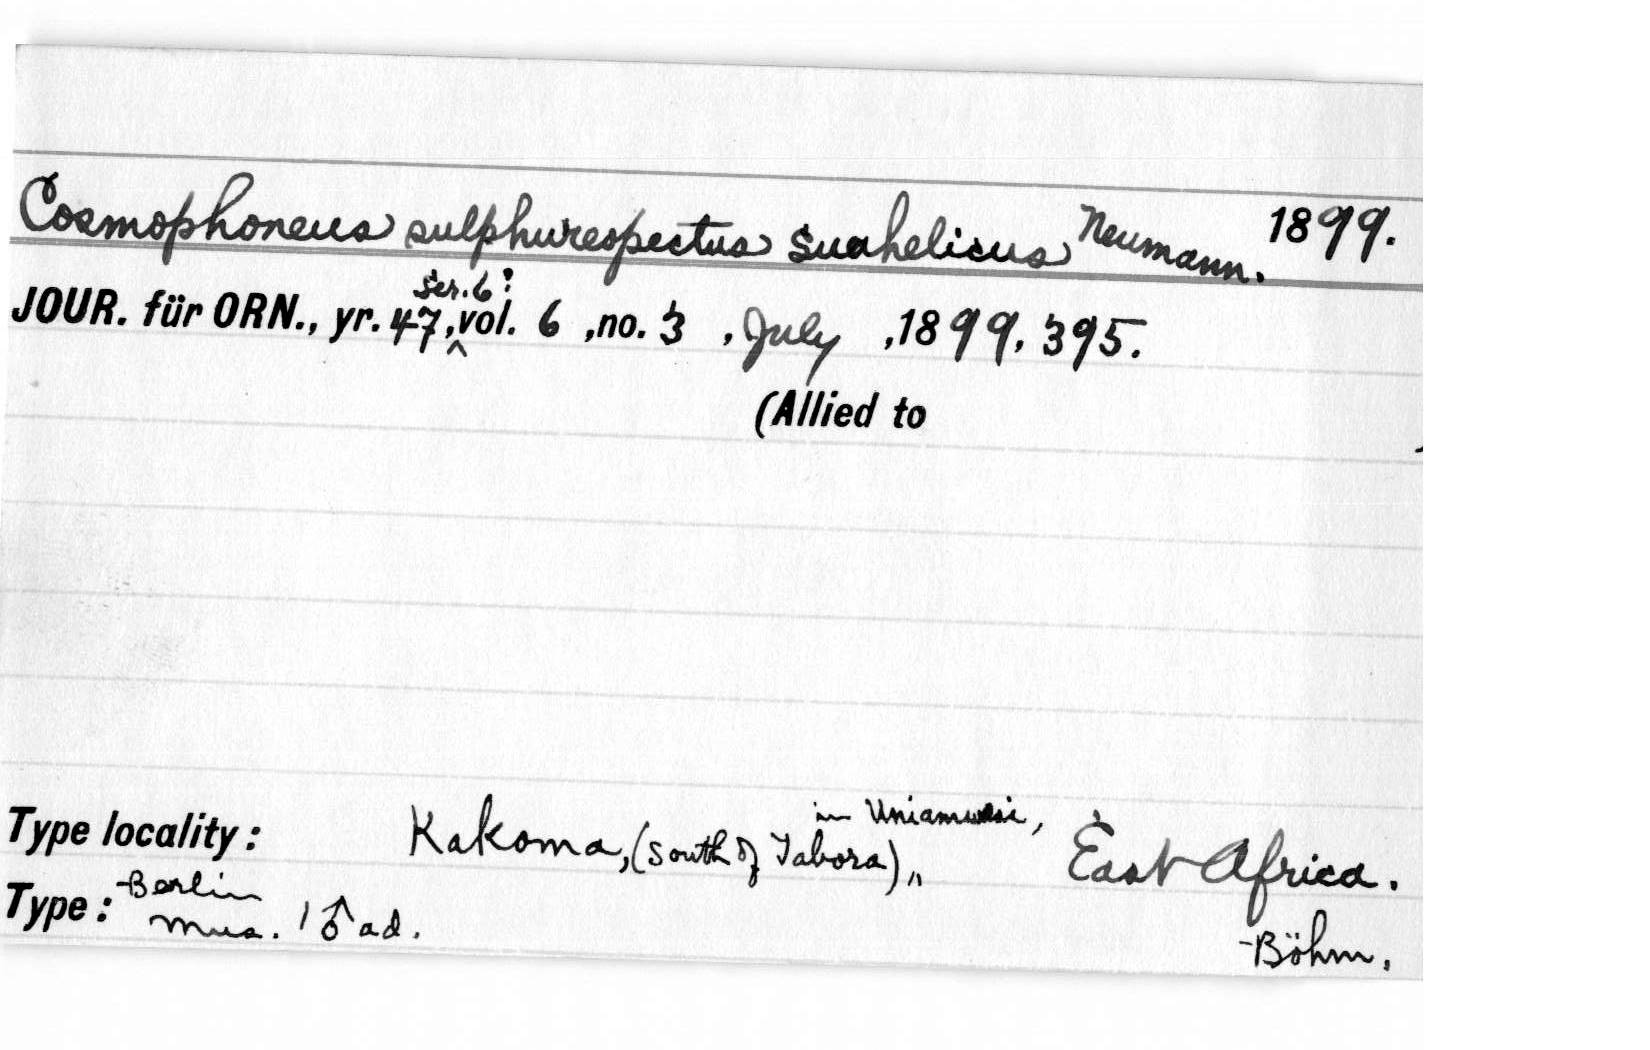 Cosmophoneus sulphureopectus suahelicus Neumann. 1899.
Ser. 6?
JOUR. für ORN., yr. 47, ^ vol. 6 ,no. 3 , July ,1899, 395.
(Allied to )
in Uniamwesi,
Type locality: Kakoma, (South of Tabora) ,, East Africa.
Type: Berlin Mus. 1 ♂ ad.
Böhm.